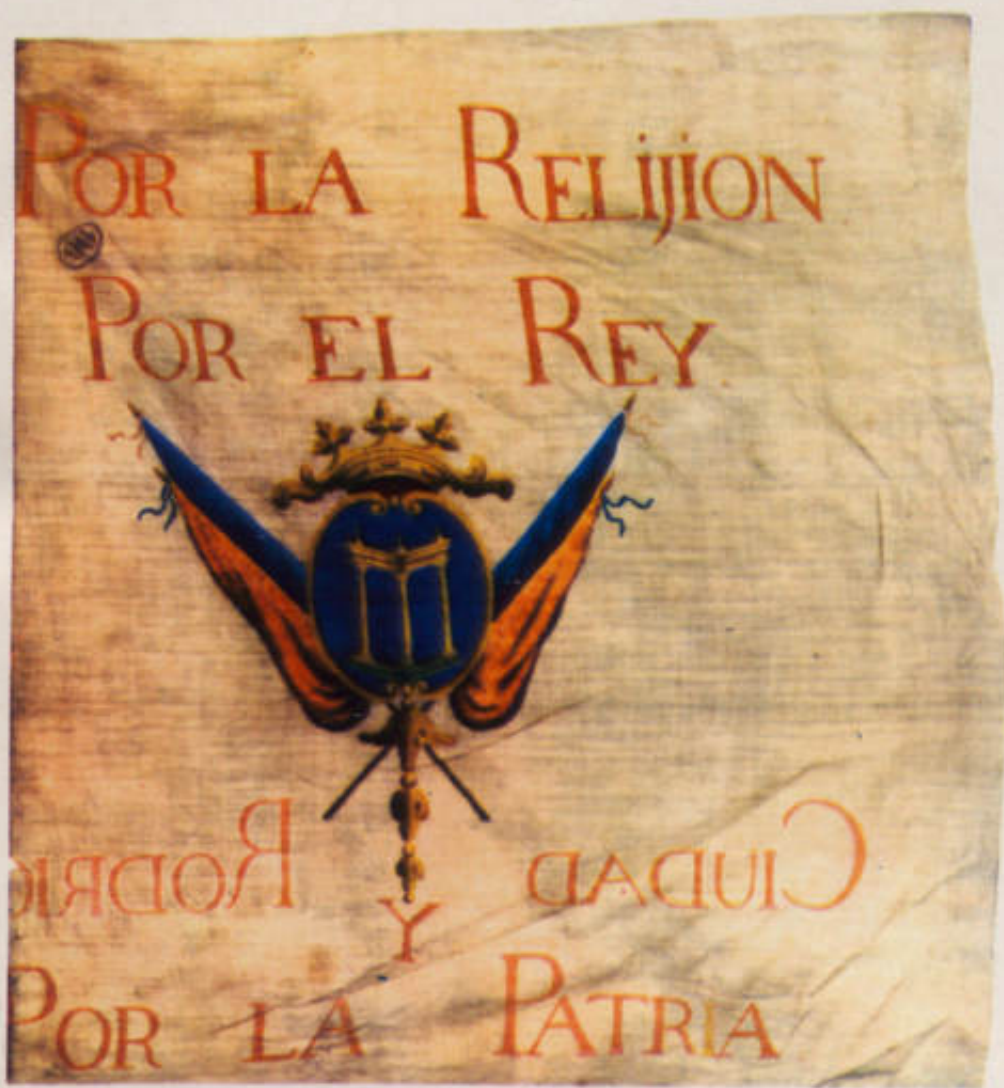 POR LA RELIJION
POR EL REY
CIUDAD RODRIG
Y
POR LA PATRIA